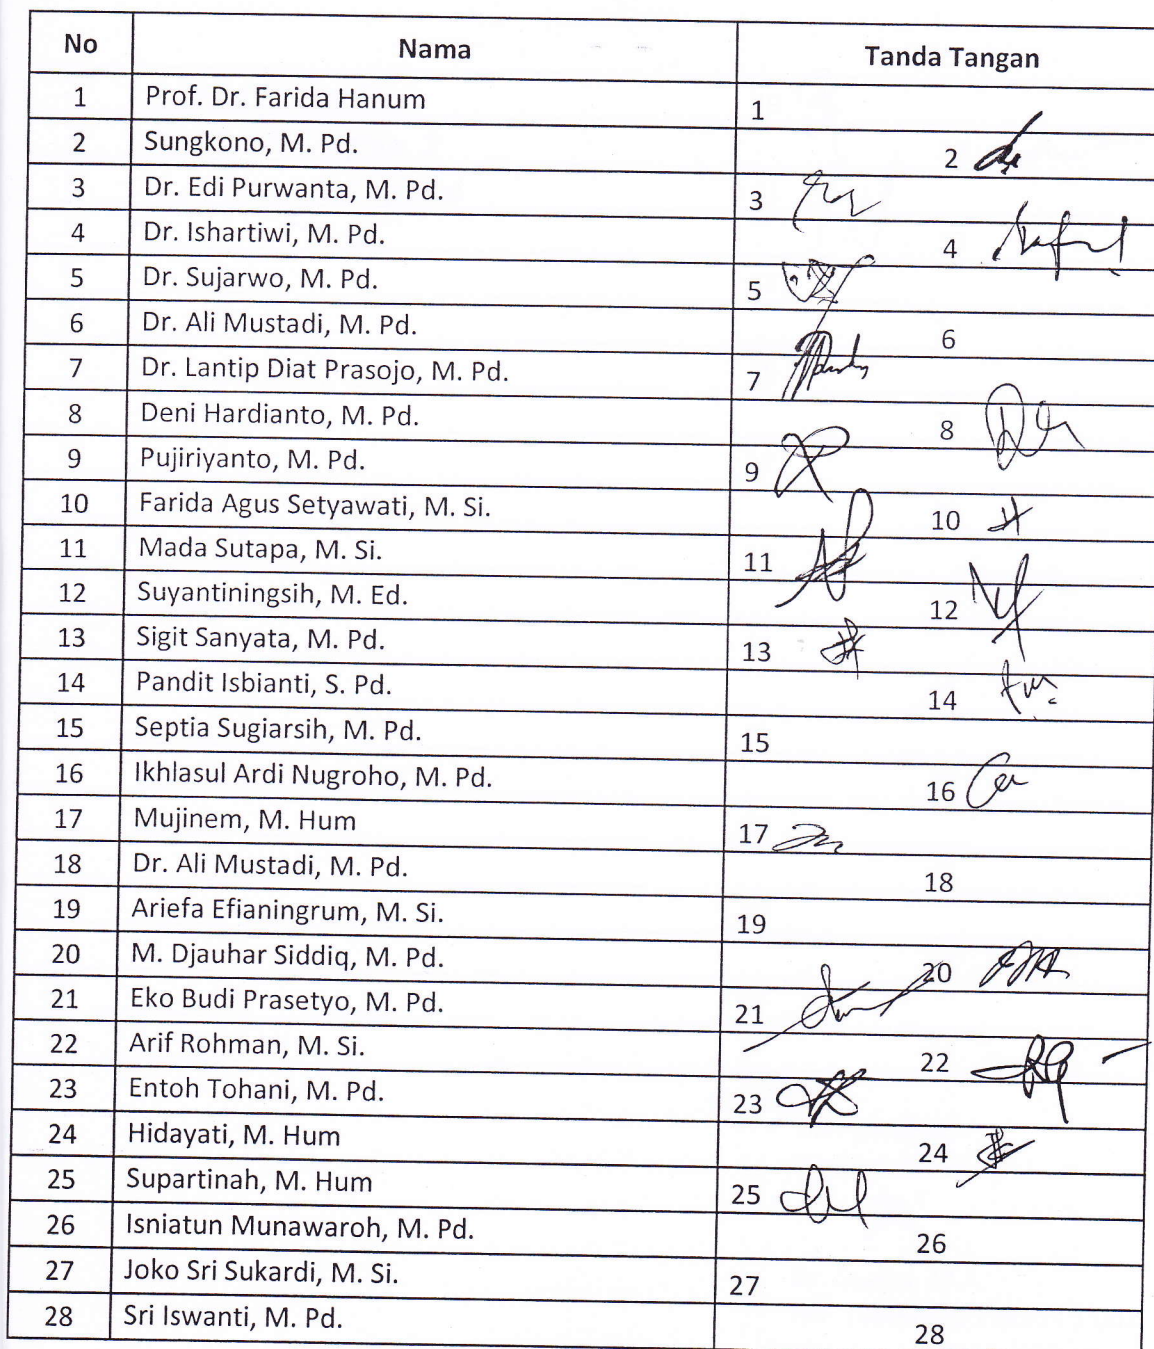 No Nama Tanda Tangan
1 Prof. Dr. Farida Hanum 1
2 Sungkono, M. Pd. 2
3 Dr. Edi Purwanta, M. Pd. 3
4 Dr. Ishartiwi, M. Pd. 4
5 Dr. Sujarwo, M. Pd. 5
6 Dr. Ali Mustadi, M. Pd. 6
7 Dr. Lantip Diat Prasojo, M. Pd. 7
8 Deni Hardianto, M. Pd. 8
9 Pujiriyanto, M. Pd. 9
10 Farida Agus Setyawati, M. Si. 10
11 Mada Sutapa, M. Si. 11
12 Suyantiningsih, M. Ed. 12
13 Sigit Sanyata, M. Pd. 13
14 Pandit Isbianti, S. Pd. 14
15 Septia Sugiarsih, M. Pd. 15
16 Ikhlasul Ardi Nugroho, M. Pd. 16
17 Mujinem, M. Hum 17
18 Dr. Ali Mustadi, M. Pd. 18
19 Ariefa Efianingrum, M. Si. 19
20 M. Djauhar Siddiq, M. Pd. 20
21 Eko Budi Prasetyo, M. Pd. 21
22 Arif Rohman, M. Si. 22
23 Entoh Tohani, M. Pd. 23
24 Hidayati, M. Hum 24
25 Supartinah, M. Hum 25
26 Isniatun Munawaroh, M. Pd. 26
27 Joko Sri Sukardi, M. Si. 27
28 Sri Iswanti, M. Pd. 28